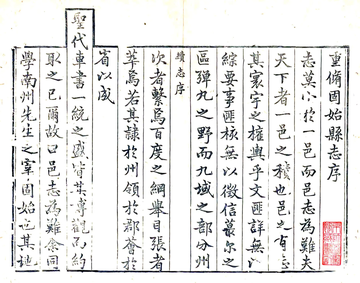 重脩固始縣志序
志莫小於一邑而邑志為難夫
天下者一邑之積也邑之有志
其寰宇之權輿乎文匪詳無以
綜要事匪核無以徵信蕞爾之
區彈丸之野而九域之部分州
續志序
次者繫焉百度之綱舉目張者
萃焉若其隸於州領於郡薈於
省以成
聖代車書一統之盛皆其專觀而約
取之已爾故曰邑志為難余同
學南州先生之宰固始也其地